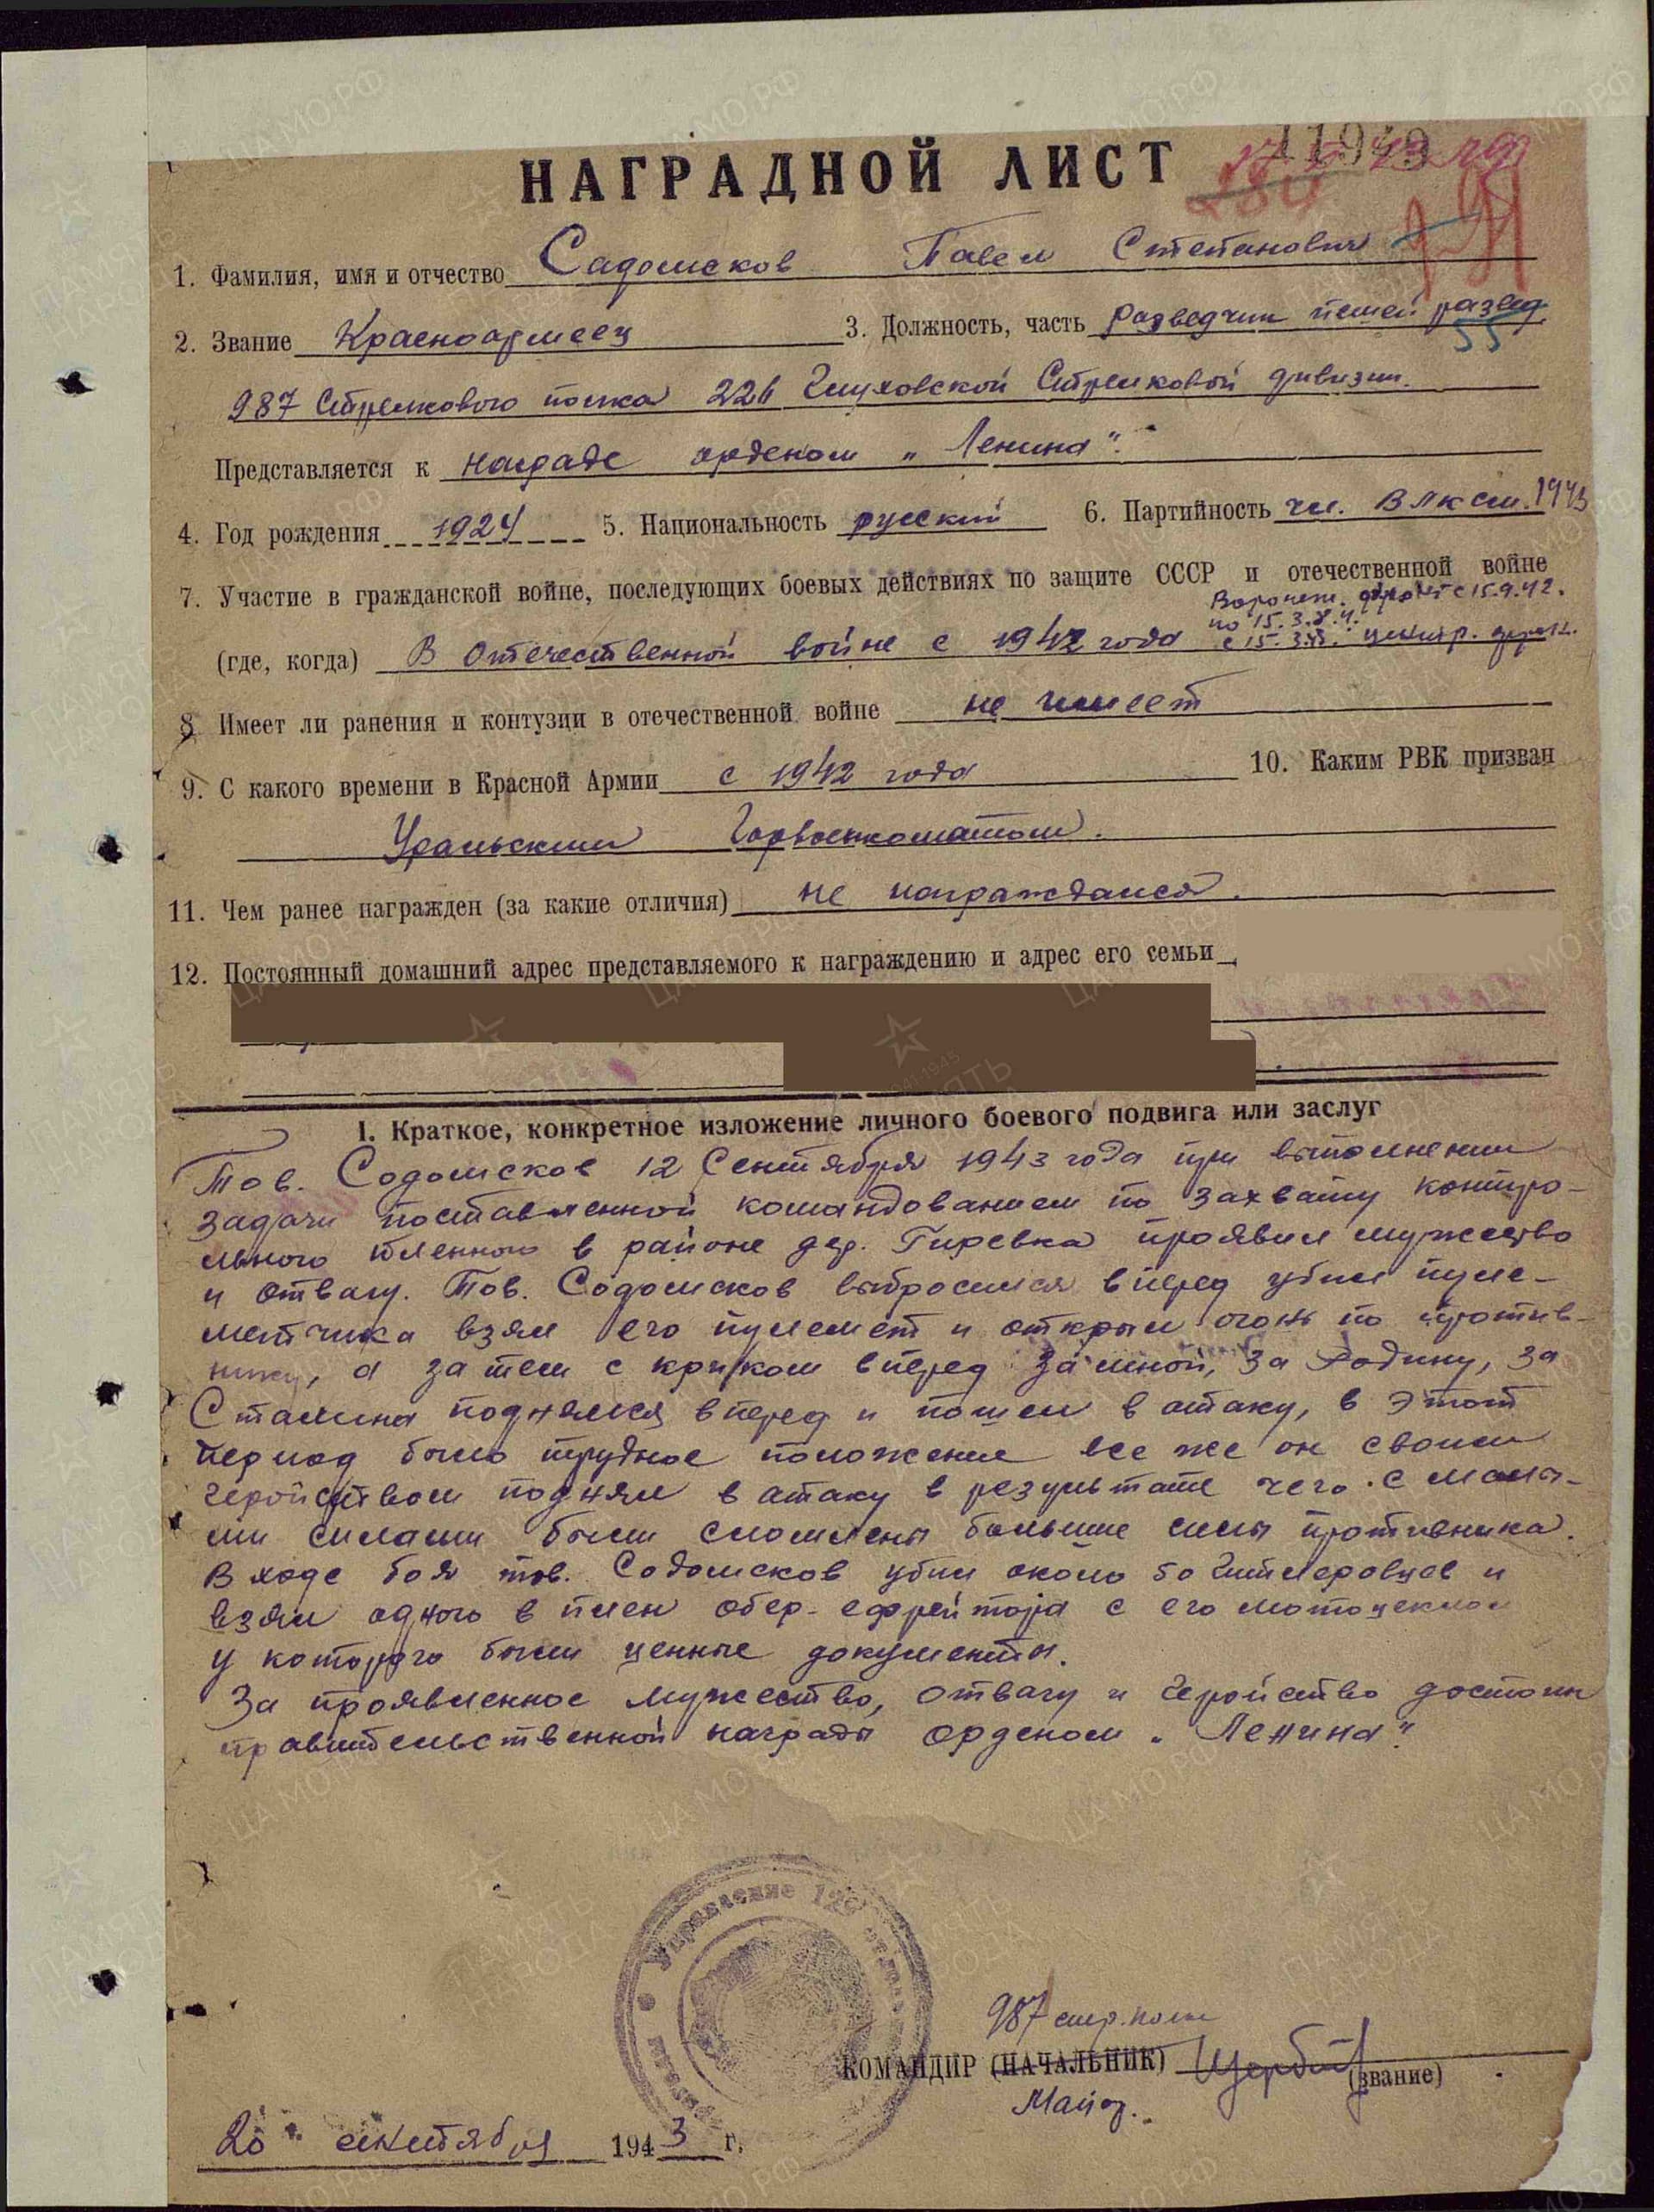 НАГРАДНОЙ ЛИСТ
11949
1. Фамилия, имя и отчество Садомсков Павел Степанович
2. Звание Красноармеец 3. Должность, часть разведчик пешей развед
55
987 Стрелкового полка 226 Глуховской Стрелковой дивизии.
Представляется к награде орденом „Ленина".
4. Год рождения 1924 5. Национальность русский 6. Партийность чл. ВЛКСМ. 1943
7. Участие в гражданской войне, последующих боевых действиях по защите СССР и отечественной войне
Воронеж. фронт с 15.9.42.
по 15.3.
(где, когда) В Отечественной войне с 1942 года с 15.3. центр. фронт.
8 Имеет ли ранения и контузии в отечественной войне не имеет
9. С какого времени в Красной Армии с 1942 года 10. Каким РВК призван
Уральским Горвоенкоматом.
11. Чем ранее награжден (за какие отличия) не награждался.
12. Постоянный домашний адрес представляемого к награждению и адрес его семьи
I. Краткое, конкретное изложение личного боевого подвига или заслуг
Тов. Содомсков 12 Сентября 1943 года при выполнении
задачи поставленной командованием по захвату контро-
льного пленного в районе дер. Гиревка проявил мужество
и отвагу. Тов. Содомсков выбросился вперед убил пуле-
метчика взял его пулемет и открыл огонь по против-
нику, а затем с криком вперед за мной, за Родину, за
Сталина поднялся вперед и пошел в атаку, в этот
период было трудное положение все же он своим
геройством поднял в атаку в результате чего с малы-
ми силами были сломлены большие силы противника.
В ходе боя тов. Содомсков убил около 50 Гитлеровцев и
взял одного в плен обер-ефрейтора с его мотоциклом
у которого были ценные документы.
За проявленное мужество, отвагу и Геройство достоин
правительственной награды орденом „Ленина"
Управление
987 стр. полк
КОМАНДИР (НАЧАЛЬНИК) (звание)
Майор.
20 сентября 1943 г.